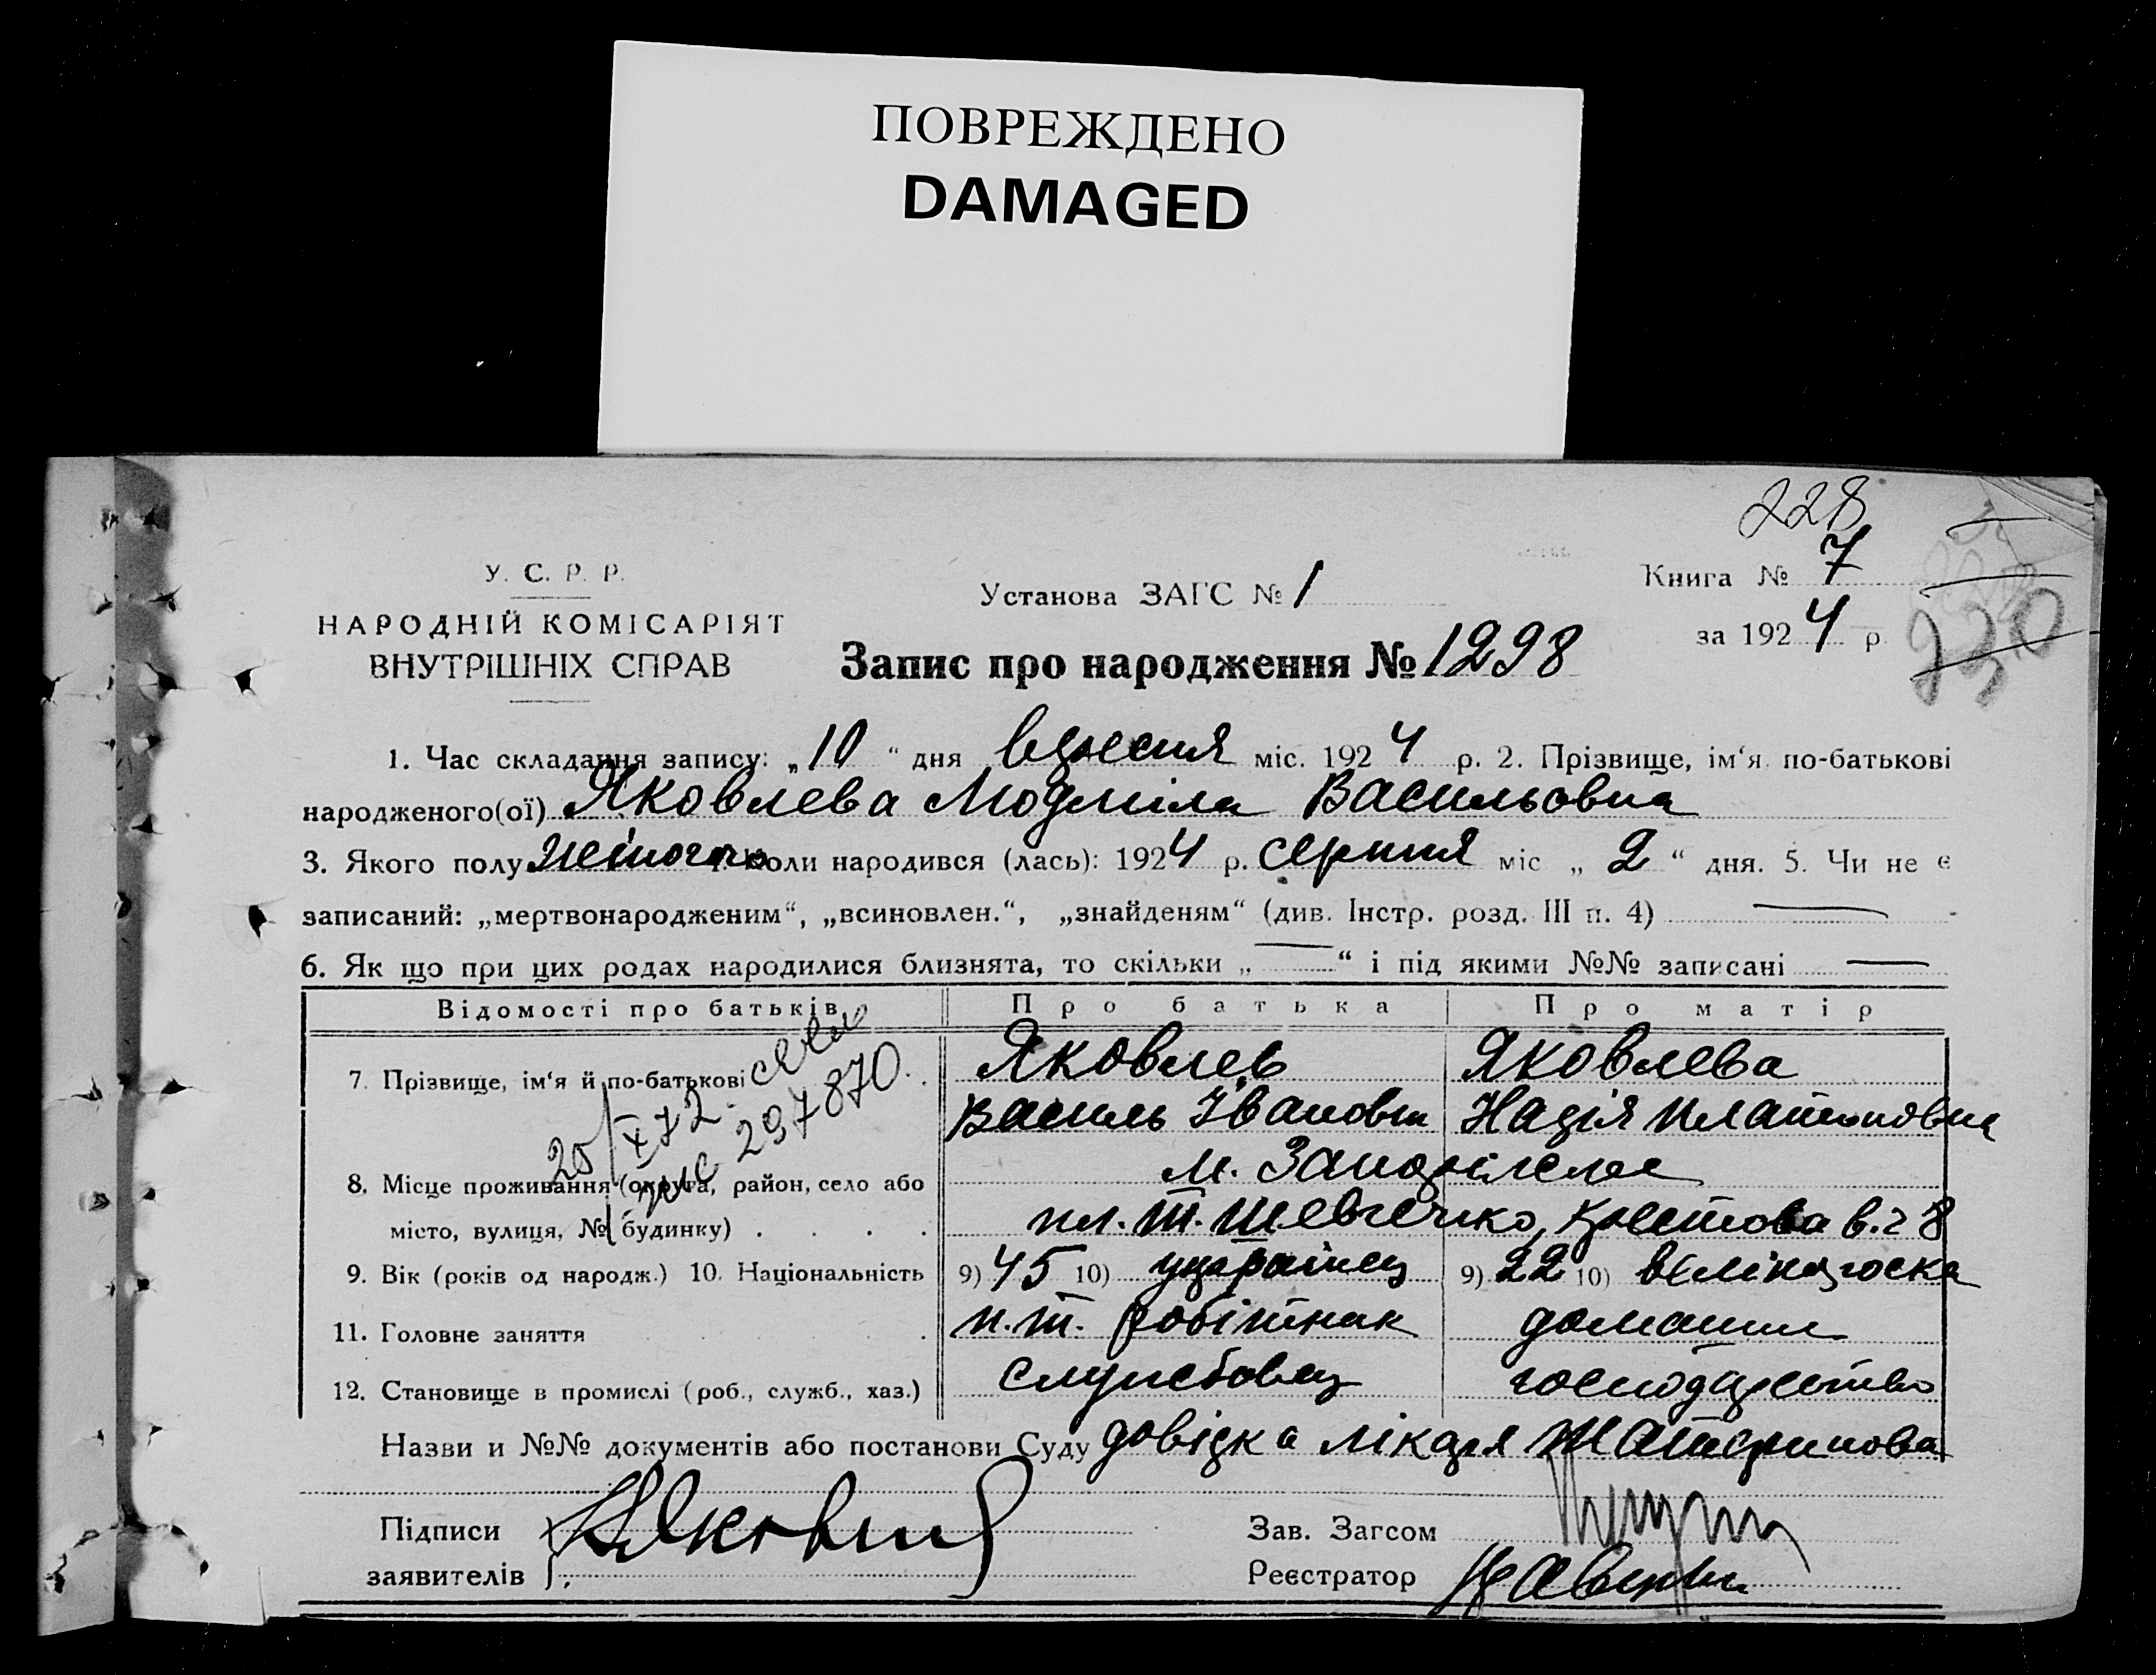 ПОВРЕЖДЕНО
DAMAGED
228
У. С. Р. Р.
НАРОДНІЙ КОМІСАРІЯТ
ВНУТРІШНІХ СПРАВ
Установа ЗАГС № 1
Книга № 7
за 1924 р.
230
Запис про народження № 1298
1. Час складання запису: „10“ дня вересня міс. 1924 р. 2. Прізвище, ім‘я по-батькові
народженого(ої) Яковлева Людміла Васильовна
3. Якого полу жіночого 4. Коли народився (лась): 1924 р. серпня міс „2“ дня. 5. Чи не є
записаний: „мертвонародженим“, „всиновлен.“, „знайденям“ (див. Інстр. розд. III п. 4) —
6. Як що при цих родах народилися близнята, то скільки „—“ і під якими №№ записані —
Відомості про батьків Про батька Про матір
7. Прізвище, ім‘я й по-батькові Яковлев Яковлева
Василь Івановіч Надія Платоновна
20/X 72
297870
8. Місце проживання (округа, район, село або м. Запоріжжє
місто, вулиця, № будинку) пл. Т. Шевченко, в. ч 8
9. Вік (років од народж.) 10. Національність 9) 45 10) українец 9) 22 10) веліко
11. Головне заняття п.т. робітник домашнє
12. Становище в промислі (роб., служб., хаз.) службовец господарство
Назви и №№ документів або постанови Суду довідка лікаря
Підписи
заявителів
Зав. Загсом
Реєстратор